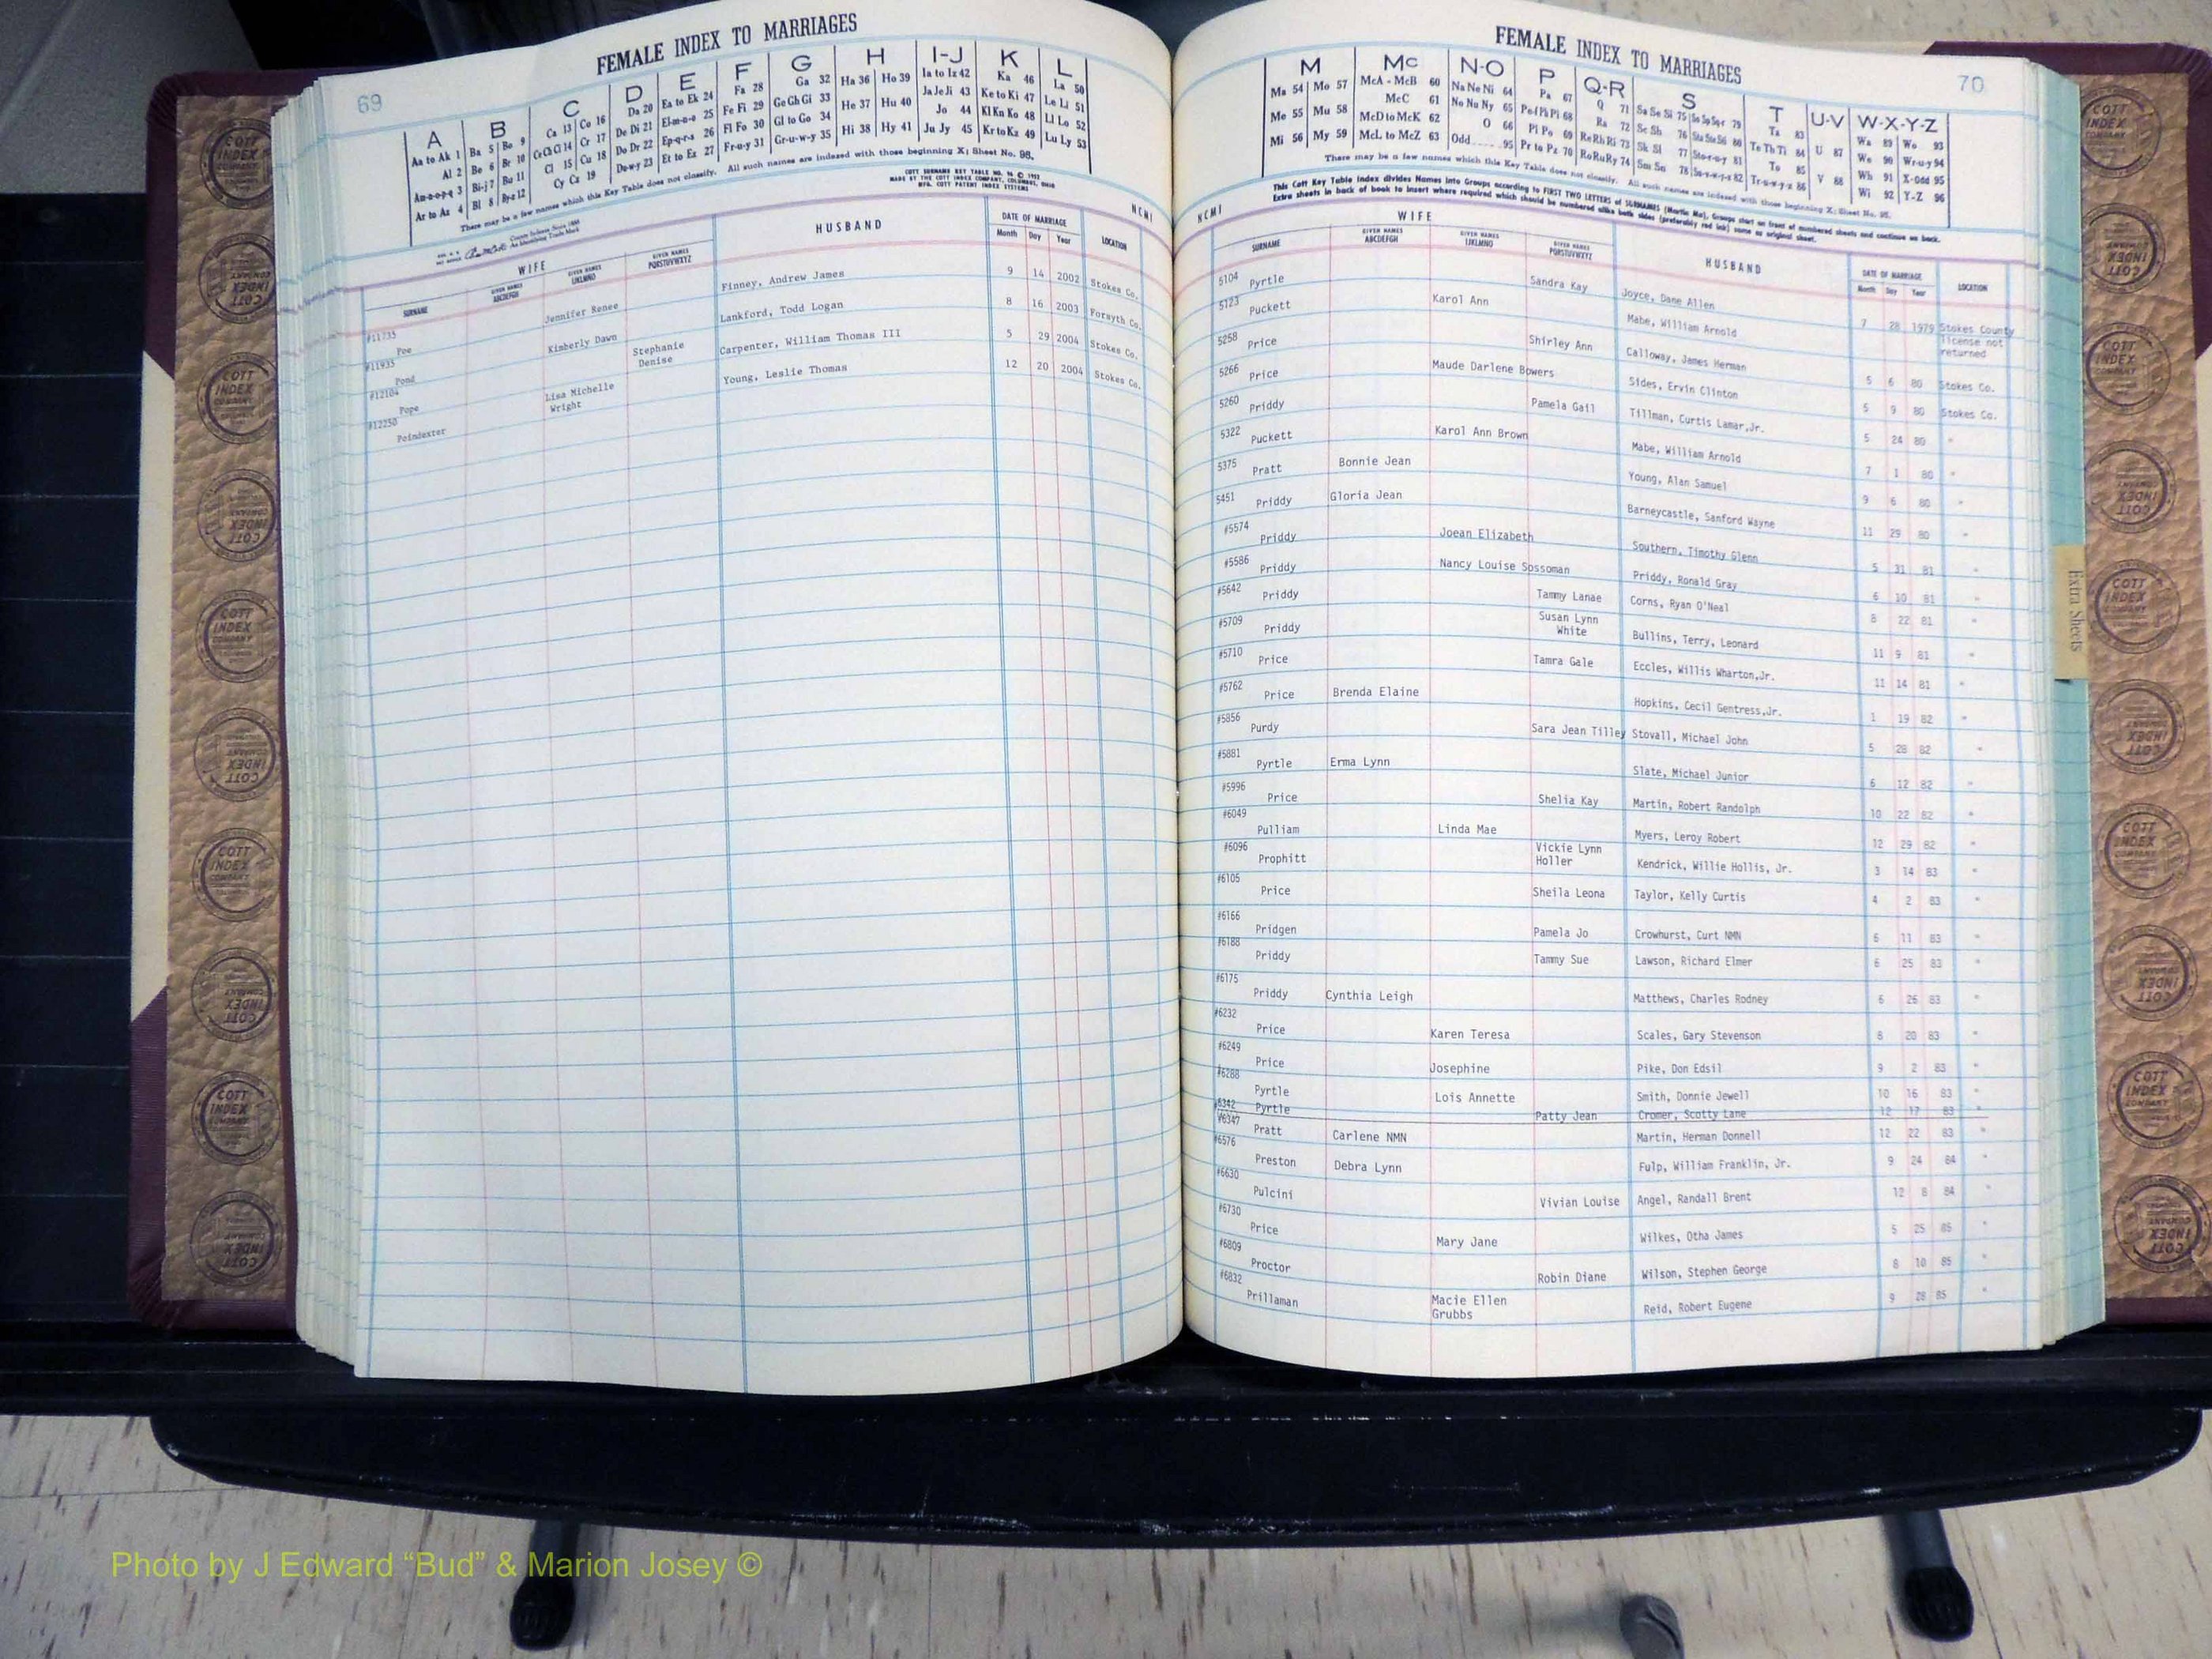 69
FEMALE INDEX TO MARRIAGES
A B C D E F G H I-J K L
Aa to Ak 1 Ba 5 Bo 9 Ca 13 Co 16 Da 20 Ea to Ek 24 Fa 28 Ga 32 Ha 36 Ho 39 Ia to Iz 42 Ka 46 La 50
Al 2 Be 6 Br 10 Ce Ch Ci 14 Cr 17 De Di 21 El-m-n-o 25 Fe Fi 29 Ge Gh Gi 33 He 37 Hu 40 Ja Je Ji 43 Ke to Ki 47 Le Li 51
Am-n-o-p-q 3 Bi-j 7 Bu 11 Cl 15 Cu 18 Do Dr 22 Ep-q-r-s 26 Fl Fo 30 Gl to Go 34 Hi 38 Hy 41 Jo 44 Kl Kn Ko 48 Ll Lo 52
Ar to Az 4 Bl 8 By-z 12 Cy Cz 19 Du-w-y 23 Et to Ez 27 Fr-u-y 31 Gr-u-w-y 35 Ju Jy 45 Kr to Kz 49 Lu Ly 53
There may be a few names which this Key Table does not classify. All such names are indexed with those beginning X; Sheet No. 95.
NCMI
WIFE HUSBAND DATE OF MARRIAGE LOCATION
SURNAME GIVEN NAMES ABCDEFGH GIVEN NAMES IJKLMNO GIVEN NAMES PQRSTUVWXYZ Month Day Year
#11735 Poe Jennifer Renee Finney, Andrew James 9 14 2002 Stokes Co.
#11935 Pond Kimberly Dawn Lankford, Todd Logan 8 16 2003 Forsyth Co.
#12104 Pope Stephanie Denise Carpenter, William Thomas III 5 29 2004 Stokes Co.
#12250 Poindexter Lisa Michelle Wright Young, Leslie Thomas 12 20 2004 Stokes Co.
FEMALE INDEX TO MARRIAGES
70
M Mc N-O P Q-R S T U-V W-X-Y-Z
Ma 54 Mo 57 McA - McB 60 Na Ne Ni 64 Pa 67 Q 71 Ta 83 Wa 89 Wo 93
Me 55 Mu 58 McC 61 No Nu Ny 65 Pe-f Ph Pi 68 Ra 72 Sc Sh 76 Te Th Ti 84 U 87 We 90 Wr-u-y 94
Mi 56 My 59 McD to McK 62 O 66 Pl Po 69 Re Rh Ri 73 Sk Sl 77 To 85 V 88 Wh 91 X-Odd 95
McL to McZ 63 Odd 95 Pr to Pz 70 Ro Ru Ry 74 Sm Sn 78 Tr-u-w-y-z 86 Wi 92 Y-Z 96
There may be a few names which this Key Table does not classify. All such names are indexed with those beginning X; Sheet No. 95.
This Cott Key Table Index divides Names into Groups according to FIRST TWO LETTERS of SURNAMES (Martin Ma), Groups start on front of numbered sheets and continue on back.
Extra sheets in back of book to insert where required which should be numbered alike both sides (preferably red ink) same as original sheet.
NCMI
WIFE HUSBAND DATE OF MARRIAGE LOCATION
SURNAME GIVEN NAMES ABCDEFGH GIVEN NAMES IJKLMNO GIVEN NAMES PQRSTUVWXYZ Month Day Year
5104 Pyrtle Sandra Kay Joyce, Dane Allen 7 28 1979 Stokes County
5123 Puckett Karol Ann Mabe, William Arnold license not returned
5258 Price Shirley Ann Calloway, James Herman 5 6 80 Stokes Co.
5266 Price Maude Darlene Bowers Sides, Ervin Clinton 5 9 80 Stokes Co.
5260 Priddy Pamela Gail Tillman, Curtis Lamar,Jr. 5 24 80 "
5322 Puckett Karol Ann Brown Mabe, William Arnold 7 1 80 "
5375 Pratt Bonnie Jean Young, Alan Samuel 9 6 80 "
5451 Priddy Gloria Jean Barneycastle, Sanford Wayne 11 29 80 "
#5574 Priddy Joean Elizabeth Southern, Timothy Glenn 5 31 81 "
#5586 Priddy Nancy Louise Sossoman Priddy, Ronald Gray 6 10 81 "
#5642 Priddy Tammy Lanae Corns, Ryan O'Neal 8 22 81 "
#5709 Priddy Susan Lynn White Bullins, Terry, Leonard 11 9 81 "
#5710 Price Tamra Gale Eccles, Willis Wharton,Jr. 11 14 81 "
#5762 Price Brenda Elaine Hopkins, Cecil Gentress,Jr. 1 19 82 "
#5856 Purdy Sara Jean Tilley Stovall, Michael John 5 28 82 "
#5881 Pyrtle Erma Lynn Slate, Michael Junior 6 12 82 "
#5996 Price Shelia Kay Martin, Robert Randolph 10 22 82 "
#6049 Pulliam Linda Mae Myers, Leroy Robert 12 29 82 "
#6096 Prophitt Vickie Lynn Holler Kendrick, Willie Hollis, Jr. 3 14 83 "
#6105 Price Sheila Leona Taylor, Kelly Curtis 4 2 83 "
#6166 Pridgen Pamela Jo Crowhurst, Curt NMN 6 11 83 "
#6188 Priddy Tammy Sue Lawson, Richard Elmer 6 25 83 "
#6175 Priddy Cynthia Leigh Matthews, Charles Rodney 6 26 83 "
#6232 Price Karen Teresa Scales, Gary Stevenson 8 20 83 "
#6249 Price Josephine Pike, Don Edsil 9 2 83 "
#6288 Pyrtle Lois Annette Smith, Donnie Jewell 10 16 83 "
#6342 Pyrtle Patty Jean Cromer, Scotty Lane 12 17 83
#6347 Pratt Carlene NMN Martin, Herman Donnell 12 22 83 "
#6576 Preston Debra Lynn Fulp, William Franklin, Jr. 9 24 84 "
#6630 Pulcini Vivian Louise Angel, Randall Brent 12 8 84 "
#6730 Price Mary Jane Wilkes, Otha James 5 25 85 "
#6809 Proctor Robin Diane Wilson, Stephen George 8 10 85 "
#6832 Prillaman Macie Ellen Grubbs Reid, Robert Eugene 9 28 85 "
Extra Sheets
COTT INDEX COMPANY
Photo by J Edward “Bud” & Marion Josey ©